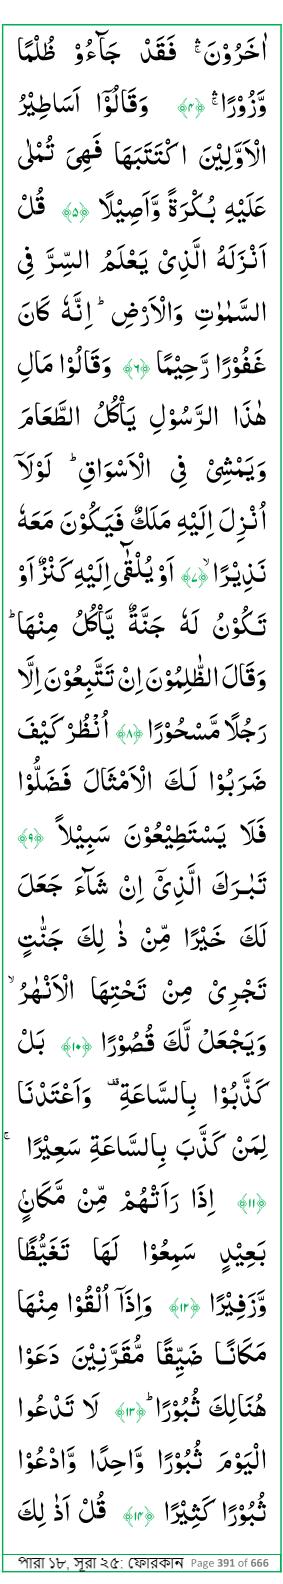 اٰخَرُوْنَ ۛۚ فَقَدْ جَآءُوْ ظُلْمًا
وَّزُوْرًا ۛۚ ﴿۴﴾ وَقَالُوْۤا اَسَاطِيْرُ
الْاَوَّلِيْنَ اكْتَتَبَهَا فَهِىَ تُمْلٰى
عَلَيْهِ بُكْرَةً وَّاَصِيْلًا ﴿۵﴾ قُلْ
اَنْزَلَهُ الَّذِىْ يَعْلَمُ السِّرَّ فِى
السَّمٰوٰتِ وَالْاَرْضِ ؕ اِنَّهٗ كَانَ
غَفُوْرًا رَّحِيْمًا ﴿۶﴾ وَقَالُوْا مَالِ
هٰذَا الرَّسُوْلِ يَاْكُلُ الطَّعَامَ
وَيَمْشِىْ فِى الْاَسْوَاقِ ؕ لَوْلَاۤ
اُنْزِلَ اِلَيْهِ مَلَكٌ فَيَكُوْنَ مَعَهٗ
نَذِيْرًا ۙ ﴿۷﴾ اَوْ يُلْقٰٓى اِلَيْهِ كَنْزٌ اَوْ
تَكُوْنُ لَهٗ جَنَّةٌ يَّاْكُلُ مِنْهَا ؕ
وَقَالَ الظّٰلِمُوْنَ اِنْ تَتَّبِعُوْنَ اِلَّا
رَجُلًا مَّسْحُوْرًا ﴿۸﴾ اُنْظُرْ كَيْفَ
ضَرَبُوْا لَـكَ الْاَمْثَالَ فَضَلُّوْا
فَلَا يَسْتَطِيْعُوْنَ سَبِيْلاً ﴿۹﴾
تَبٰـرَكَ الَّذِىْۤ اِنْ شَآءَ جَعَلَ
لَكَ خَيْرًا مِّنْ ذٰ لِكَ جَنّٰتٍ
تَجْرِىْ مِنْ تَحْتِهَا الْاَنْهٰرُ ۙ
وَيَجْعَلْ لَّكَ قُصُوْرًا ﴿۱۰﴾ بَلْ
كَذَّبُوْا بِالسَّاعَةِ ۟ وَاَعْتَدْنَا
لِمَنْ كَذَّبَ بِالسَّاعَةِ سَعِيْرًا ۚ
﴿۱۱﴾ اِذَا رَاَتْهُمْ مِّنْ مَّكَانٍۢ
بَعِيْدٍ سَمِعُوْا لَهَا تَغَيُّظًا
وَّزَفِيْرًا ﴿۱۲﴾ وَاِذَاۤ اُلْقُوْا مِنْهَا
مَكَانًـا ضَيِّقًا مُّقَرَّنِيْنَ دَعَوْا
هُنَالِكَ ثُبُوْرًا ؕ ﴿۱۳﴾ لَا تَدْعُوا
الْيَوْمَ ثُبُوْرًا وَّاحِدًا وَّادْعُوْا
ثُبُوْرًا كَثِيْرًا ﴿۱۴﴾ قُلْ اَذٰ لِكَ
পারা ১৮, সূরা ২৫: ফোরকান Page 391 of 666